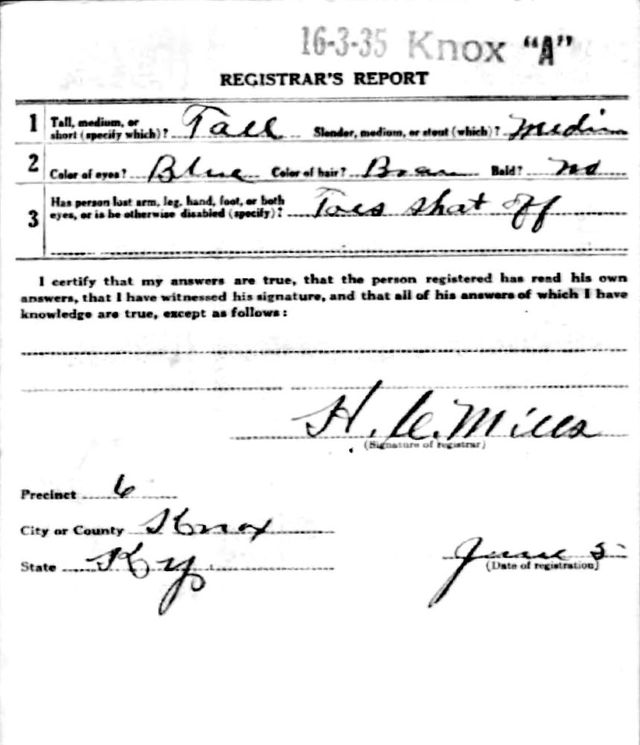 16-3-35 Knox "A"
REGISTRAR'S REPORT
1 Tall, medium, or short (specify which)? Tall Slender, medium, or stout (which)? Medium
2 Color of eyes? Blue Color of hair? Brown Bald? no
3 Has person lost arm, leg, hand, foot, or both eyes, or is he otherwise disabled (specify)? Toes shot off
I certify that my answers are true, that the person registered has read his own
answers, that I have witnessed his signature, and that all of his answers of which I have
knowledge are true, except as follows:
H. C. Mills
(Signature of registrar)
Precinct 6
City or County Knox
State Ky June 5
(Date of registration)